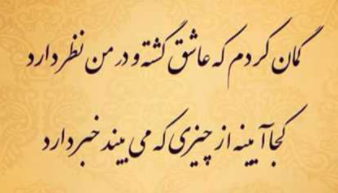 گمان کردم که عاشق گشته و در من نظر دارد
کجا آیینه از چیزی که می بیند خبر دارد